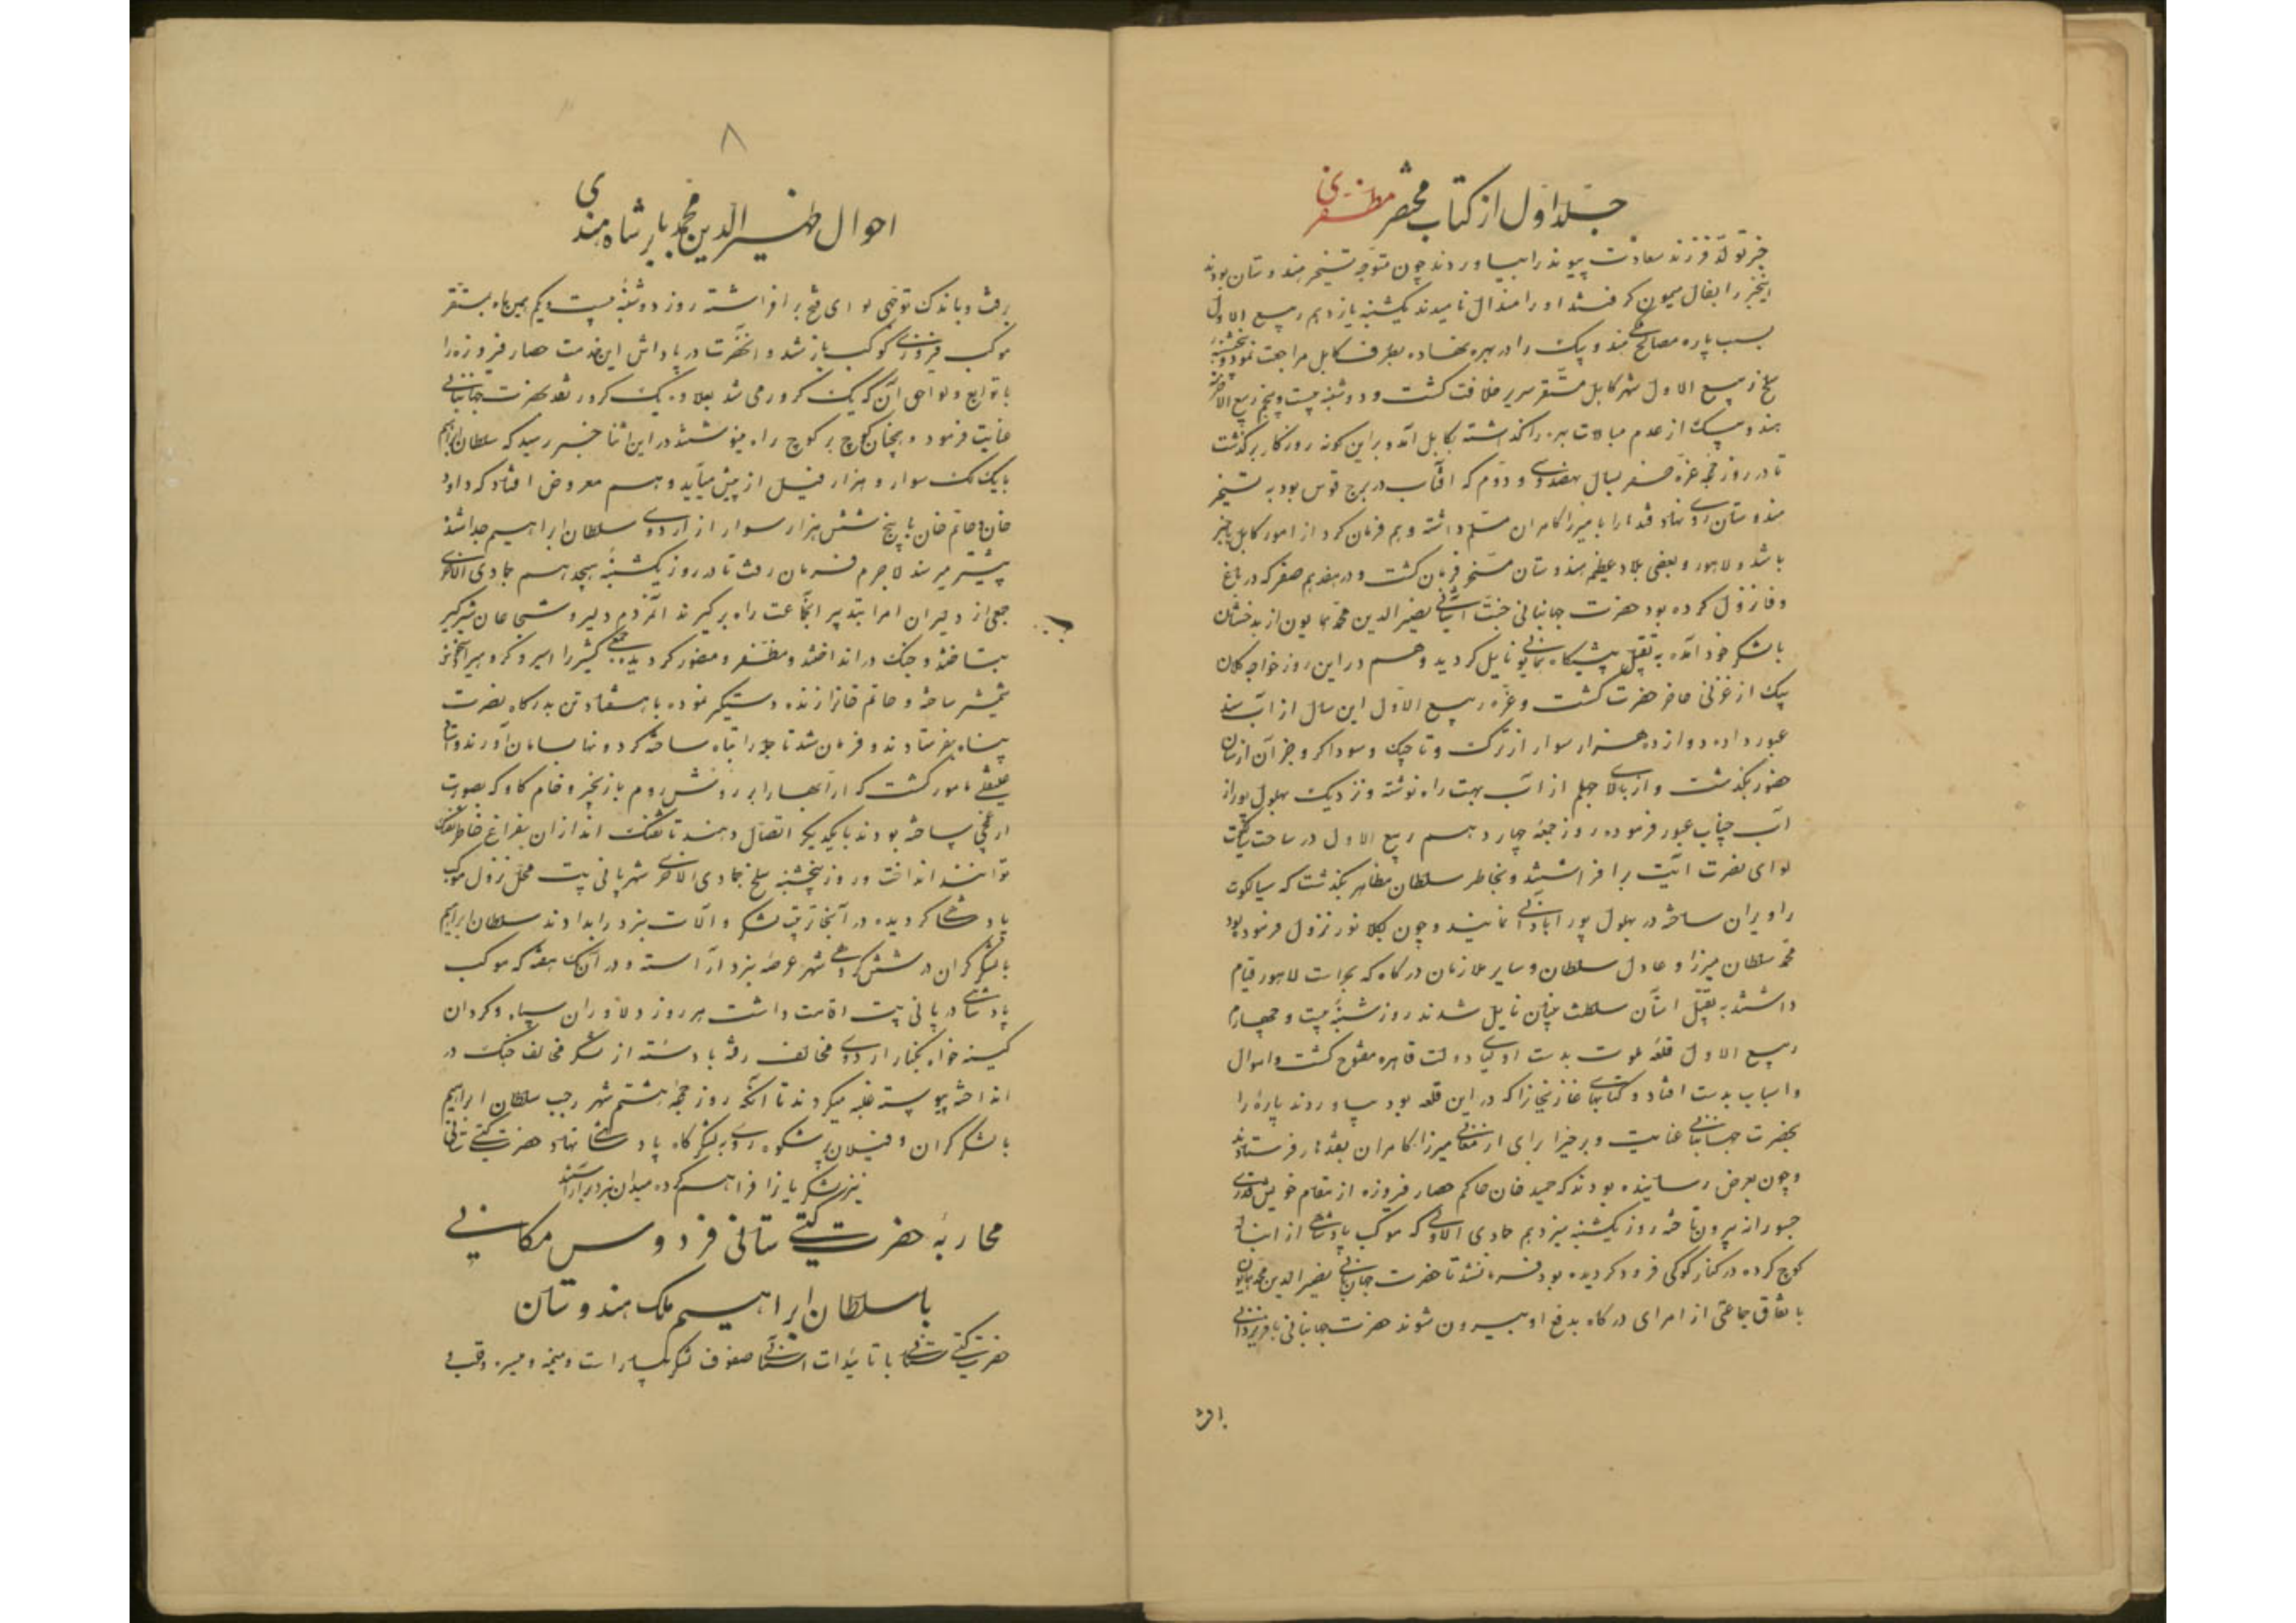 جلد اول از کتاب مختصر مظفری
خبر تولد فرزند سعادت پیوند را بیاوردند چون متوجه تسخیر هندوستان بودند
اینخبر را بفال میمون گرفتند او را هندال نامیدند یکشنبه یازدهم ربیع الاول
بسبب پاره مصالح هندو بیک را در بهره نهاده بطرف کابل مراجعت نمود و پنجشنبه
سلخ ربیع الاول شهر کابل مستقر سریر خلافت گشت و دوشنبه بیست و پنجم ربیع الآخر
هندو بیک از عدم مبالات بهره را گذاشته بکابل آمد و بر این گونه روزگار برگذشت
تا در روز جمعه غره صفر بسال نهصد و سی و دوم که آفتاب در برج قوس بود به تسخیر
هندوستان روی نهاد قندهار را با میرزا کامران مسلم داشته و هم فرمان کرد از امور کابل باخبر
باشد و لاهور و بعضی بلاد عظیم هندوستان مسخر فرمان گشت و در هفدهم صفر که در باغ
وفا نزول کرده بود حضرت جهانبانی جنت آشیانی نصیر الدین محمد همایون از بدخشان
با لشکر خود آمده به تقبیل پیشگاه همایونی نایل گردید و هم در این روز خواجه کلان
بیک از غزنی حاضر حضرت گشت و غره ربیع الاول این سال از آب سند
عبور داده دوازده هزار سوار از ترک و تاجیک و سوداگر و جز آن از سان
حضور بگذشت و از بالای جیلم از آب بهت راه نوشته و نزدیک بهلول پور از
آب چناب عبور فرموده روز جمعه چهاردهم ربیع الاول در ساحت سیالکوت
لوای نصرت آیت برافراشتند و بخاطر سلطان مظاهر بگذشت که سیالکوت
را ویران ساخته در بهلول پور آبادانی نمایند و چون بکلانور نزول فرمود بود
محمد سلطان میرزا و عادل سلطان و سایر ملازمان درگاه که بحراست لاهور قیام
داشتند به تقبیل آستان سلطنت بنیان نایل شدند روز شنبه بیست و چهارم
ربیع الاول قلعه ملوت بدست اولیای دولت قاهره مفتوح گشت و اموال
و اسباب بدست افتاد و کتابهای غازیخانرا که در این قلعه بود بیاوردند پاره را
بحضرت جهانبانی عنایت و برخی را برای ارمغانی میرزا کامران بقندهار فرستادند
و چون بعرض رسانیده بودند که حمید خان حاکم حصار فیروزه از مقام خویش قدری
جسورانه بیرون تاخته روز یکشنبه سیزدهم جمادی الاولی که موکب پادشاهی از انباله
کوچ کرده در کنار کوکی فرود گردیده بود فرمانشد تا حضرت جهانبانی نصیر الدین محمد همایون
با تفاق جماعتی از امرای درگاه بدفع او بیرون شوند حضرت جهانبانی بافریزدانی
۸
احوال ظهیر الدین محمد بابر شاه هندی
برفت و باندک توجهی لوای فتح برافراشته روز دوشنبه بیست و یکم همین ماه بمستقر
موکب فیروزی کوکب باز شد و آنحضرت در پاداش این خدمت حصار فیروزه را
با توابع و لواحق آن که یک کرور می شد بعلاوه یک کرور نقد بحضرت جهانبانی
عنایت فرمود و همچنان کوچ بر کوچ راه مینوشتند در این اثنا خبر رسید که سلطان ابراهیم
با یک لک سوار و هزار فیل از پیش میآید و هم معروض افتاد که داود
خان و حاتم خان با پنج شش هزار سوار از اردوی سلطان ابراهیم جدا شده
پیشتر میرسند لاجرم فرمان رفت تا در روز یکشنبه هیجدهم جمادی الاخری
جمعی از دلیران امرا بتدبیر آنجماعت راه برگیرند آنمردم دلیر و شجاعان شیرگیر
بتاختند و جنگ در انداختند و مظفر و منصور گردیده جمعی کثیر را اسیر و گروهی را
شمشیر ساخته و حاتم خانرا زنده دستگیر نموده با هفتاد تن بدرگاه نصرت
پناه بفرستادند و فرمان شد تا جمله را تباه ساخته گردونها بسامان آورند و استاد
علیقلی مامور گشت که ارابها را بر روش روم با زنجیر و خام گاو که بصورت
ارغمچی ساخته بودند با یکدیگر اتصال دهند تا تفنگ اندازان بفراغ خاطر تفنگ
توانند انداخت و روز پنجشنبه سلخ جمادی الاخری شهر پانی پت محل نزول موکب
پادشاهی گردیده در آنجا ترتیب لشکر و آلات نبرد را بدادند سلطان ابراهیم
با لشکر گران در شش کروهی شهر عرصه نبرد آراسته و در آن یک هفته که موکب
پادشاهی در پانی پت اقامت داشت هر روز دلاوران سپاه و گردان
کینه خواه بکنار اردوی مخالف رفته با دسته از لشکر مخالف جنگ در
انداخته پیوسته غلبه میکردند تا آنکه روز جمعه هشتم شهر رجب سلطان ابراهیم
با لشکر گران و فیلان پر شکوه روی به لشکرگاه پادشاهی نهاد حضرت گیتی ستانی
نیز لشکریانرا فراهم کرده میدان نبرد برآراستند
محاربه حضرت گیتی ستانی فردوس مکانی
با سلطان ابراهیم ملک هندوستان
حضرت گیتی ستانی با تائیدات آسمانی صفوف لشکر بیاراست و میمنه و میسره و قلب و